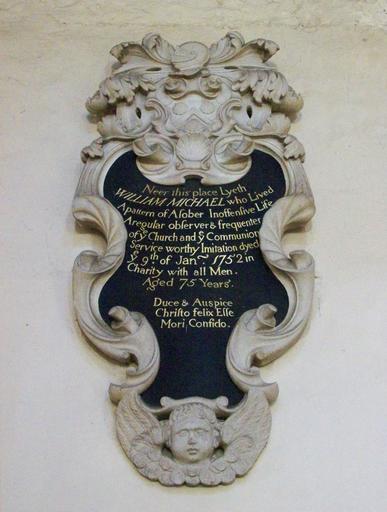 Neer this place Lyeth
WILLIAM MICHAEL who Lived
A pattern of A sober Inoffensive Life
A regular observer & frequenter
of yͤ Church and yͤ Communion
Service worthy Imitation dyed
yͤ 9th of Janry. 1752 in
Charity with all Men.
Aged 75 Years.
Duce & Auspice
Christo felix Esse
Mori Confido.